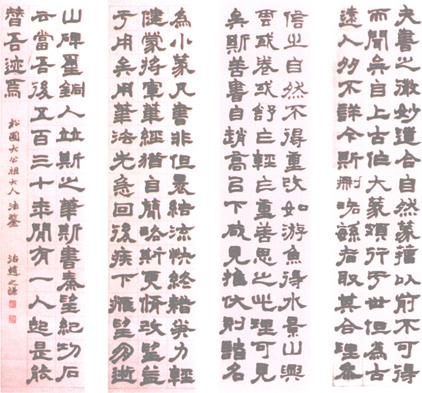 夫書之微妙道合自然篆籀以前不可得
而聞矣自上古作大篆頌行于世但為古
遠人多不詳今斯刪略繇者取其合理參
信之自然不得重改如游魚得水景山興
雲或卷或舒乍輕乍重善思之此理可見
矣斯善書自趙高已下咸見推伏刻諸名
為小篆凡書非但裹結流快終藉筆力輕
健蒙將軍筆經猶自簡略斯更修改望益
于用矣用筆法先急回後疾下鷹望勿逝
山碑璽銅人竝斯之筆斯書秦望紀功石
云當吾後五百三十年間有一人起是能
替吾迹焉 松園大公祖大人法鑒 治趙之謙